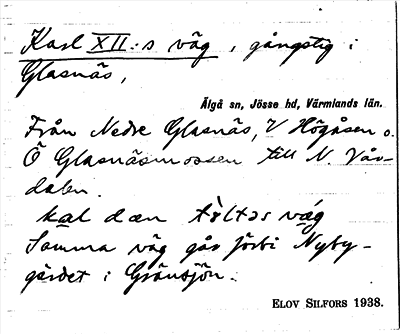 Karl XII:s väg, gångstig i
Glasnäs,
Älgå sn, Jösse hd, Värmlands län.
Från Nedre Glasnäs, V Högåsen o.
Ö Glasnäsmossen till N. Vår-
dalen.
kal dæn tåltəs væg
Samma väg går förbi Nyby-
gärdet i Gränsjön.
ELOV SILFORS 1938.